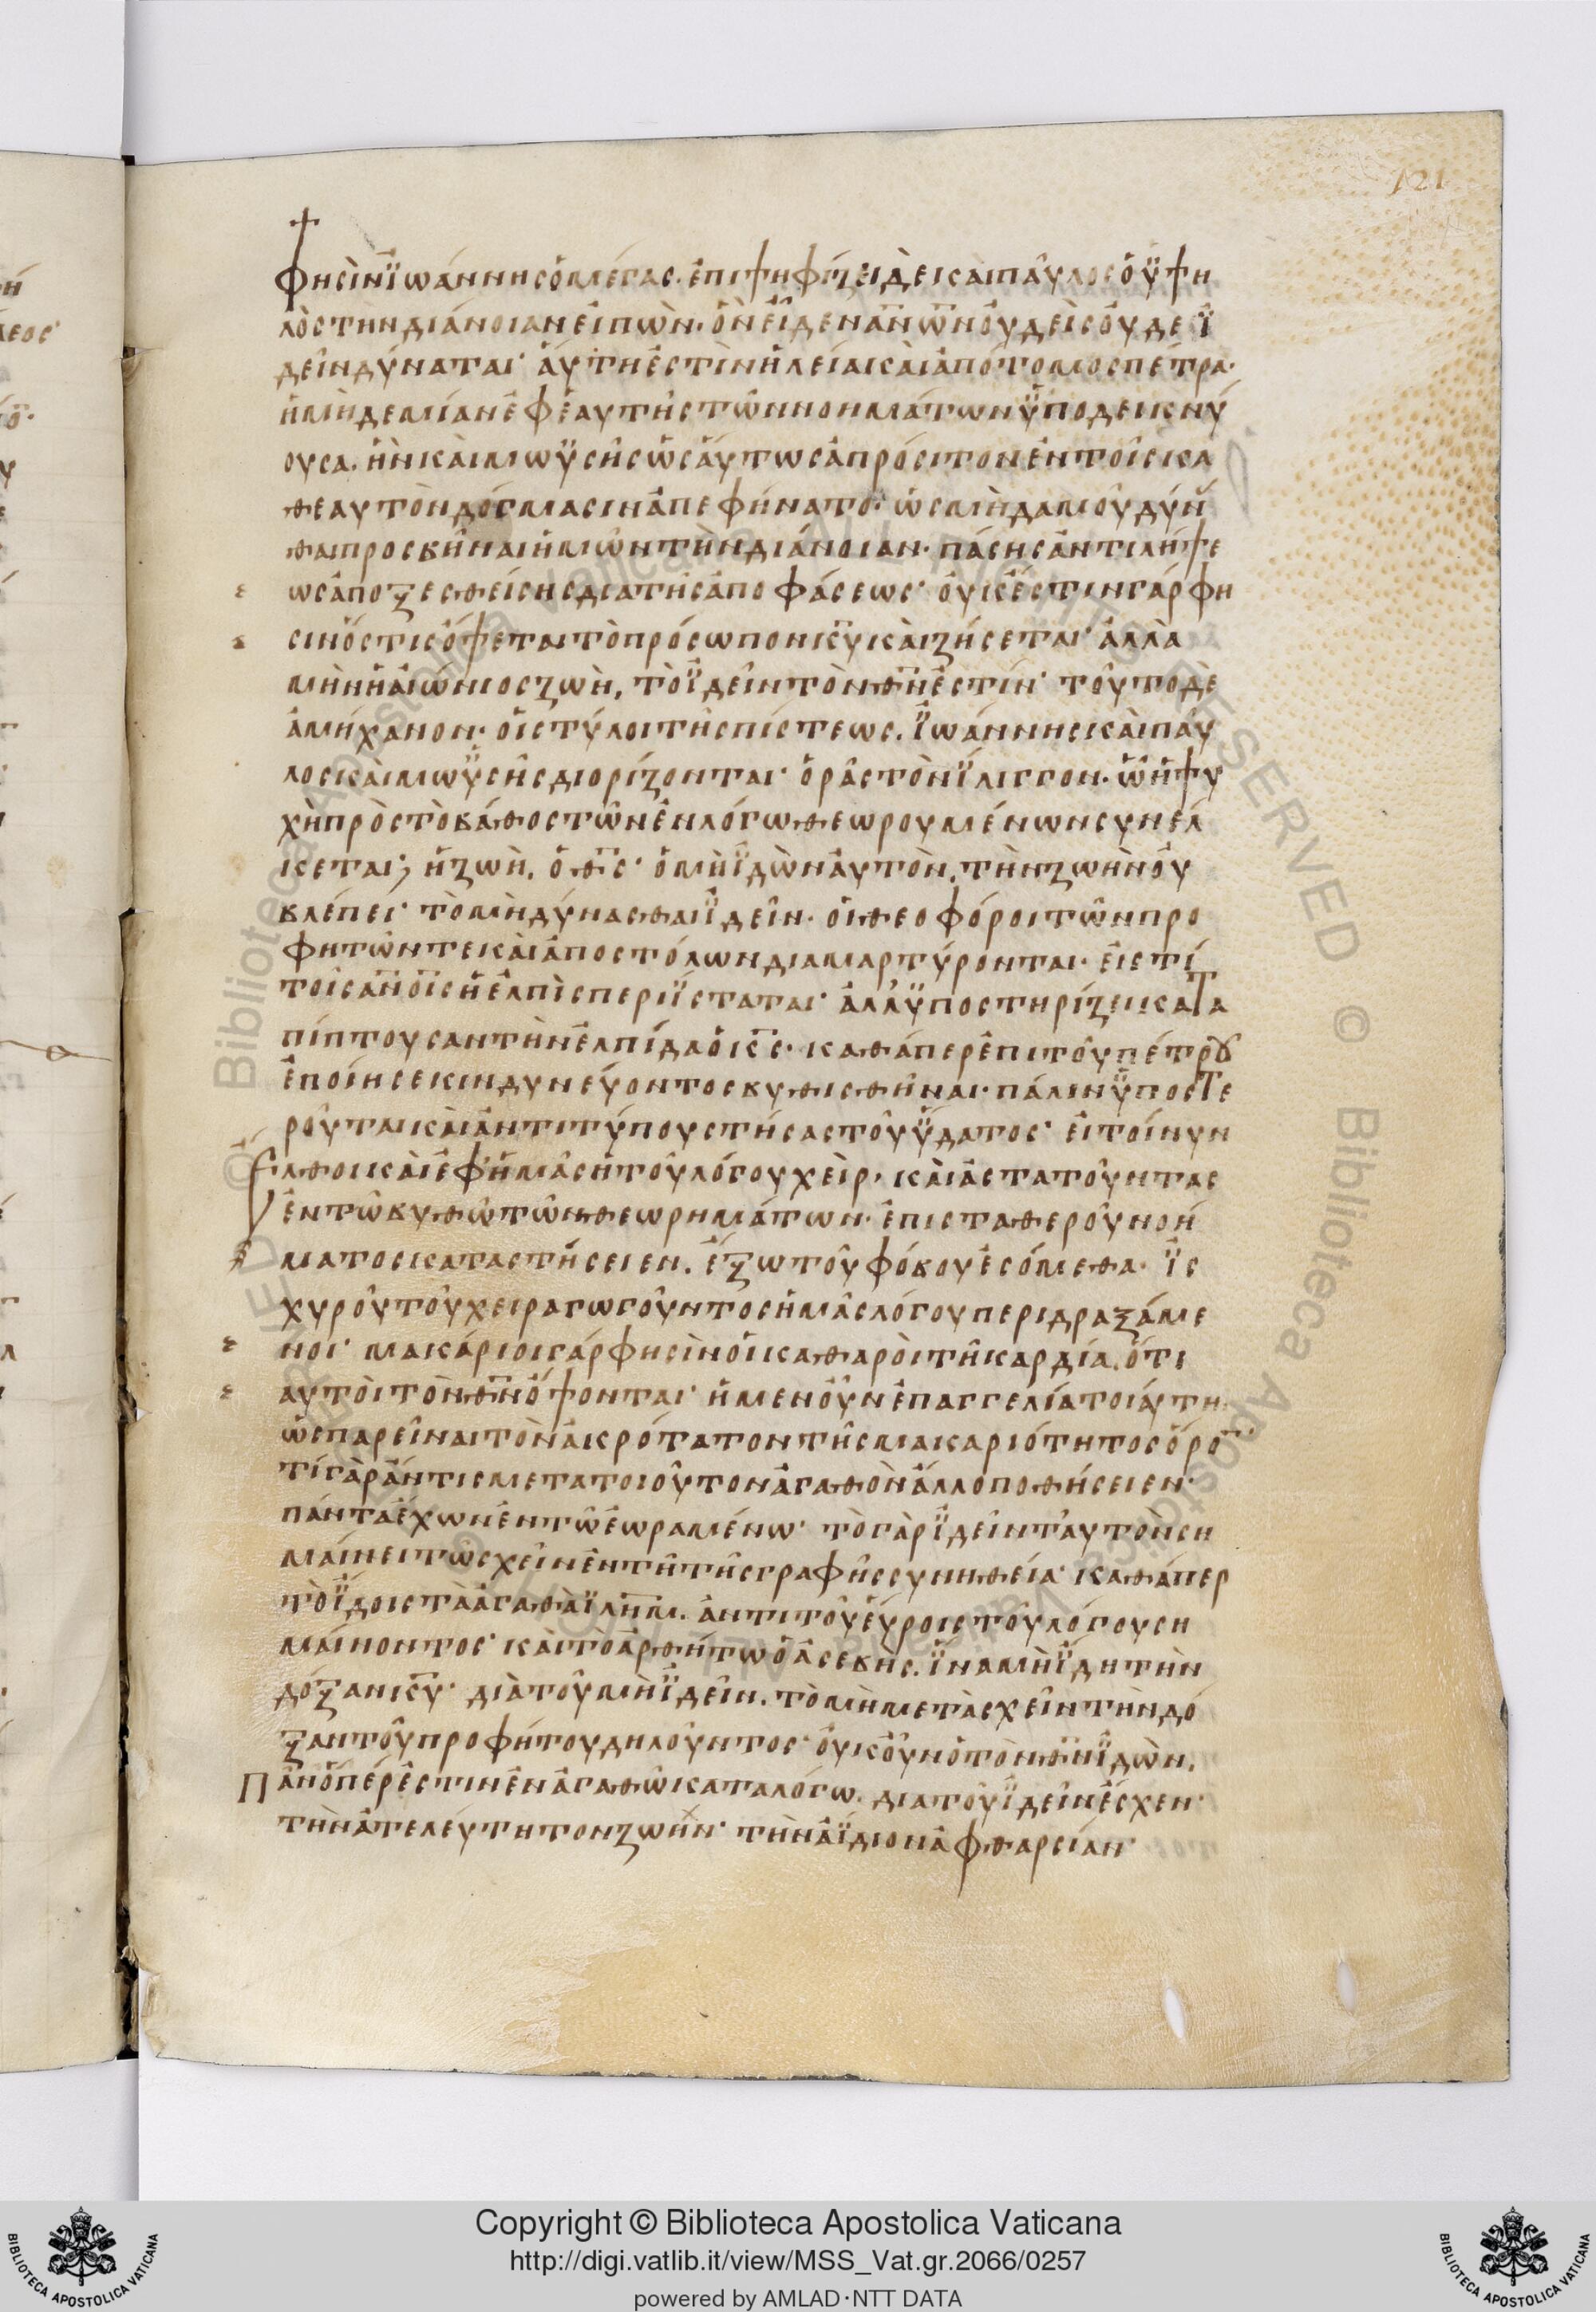 121
φησὶν ἰωάννης ὁ μέγας. ἐπιψηφίζει δὲ καὶ παῦλος ὁ ὑψη
λὸς την διάνοιαν εἰπὼν. ὃν εἶδεν ἀνῶν οὐδεὶς οὐδε ἰ
δεῖν δύναται· αὕτη ἐστὶν ἡ λεία καὶ ἀπότομος πέτρα.
ἡ μὴδεμίαν ἐφ ἑαυτῆς τῶν νοημάτων ὑποδεικνύ
ουσα. ἣν καὶ μωϋσῆς ὡσαύτως ἀπρόσιτον ἐν τοῖς κα
θεαυτὸν δόγμασιν ἀπεφήνατο· ὡς μὴδαμοῦ δύνα
θαι προσβῆναι ἡμῶν τὴν διάνοιαν· πάσης ἀντιλήψε
ως ἀποξεσθείσης δια τῆς ἀποφάσεως· οὐκ ἔστιν γάρ φη
σιν ὅστις ὄψεται τὸ πρόσωπον κυ καὶ ζήσεται· ἀλλὰ
μὴν ἡ αἰώνιος ζωὴ, τὸ ἰδεῖν τὸν θν ἐστίν· τοῦτο δὲ
ἀμήχανον· οἱ στύλοι τῆς πίστεως. ἰωάννης καὶ παῦ
λος καὶ μωϋσῆς διορίζονται· ὁρᾶς τὸν ἴλιγγον. ᾧ ἡ ψυ
χὴ πρὸς τὸ βάθος τῶν ἐν λόγω θεωρουμένων συνέλ
κεται; ἡ ζωὴ. ὁ θς· ὁ μὴ ἰδὼν αὐτὸν. τὴν ζωὴν οὐ
βλέπει· τὸ μὴ δύνασθαι ἰδεῖν. οἱ θεοφόροι τῶν προ
φητῶν τε καὶ ἀποστόλων διαμαρτύρονται· εἰς τί
τοῖς ἀνοῖς ἡ ἐλπὶς περιΐσταται· ἀλλ' ὑποστηρίζει κατα
πίπτουσαν τὴν ἐλπίδα ὁ κς· καθάπερ ἐπι τοῦ πέτρου
ἐποίησε κινδυνεύοντος βυθισθῆναι· πάλιν ὑποστε
ροῦται καὶ ἀντιτύπου στήσας τοῦ ὕδατος· εἰ τοίνυν
ἔλθοι καὶ ἐφ' ἡμᾶς ἡ τοῦ λόγου χεὶρ, καὶ ἀστατοῦντας
ἐν τῶ βυθῶ τῶν θεωρημάτων· ἐπι σταθεροῦ νοή
ματος καταστήσειεν. ἔξω τοῦ φόβου ἐσόμεθα· ἰσ
χυροῦ τοῦ χειραγωγοῦντος ἡμᾶς λόγου περιδραξάμε
νοι· μακάριοι γάρ φησὶν οἱ καθαρὸι τῆ καρδία. ὅτι
αυτὸι τὸν θν ὄψονται· ἡ μεν οὖν ἐπαγγελία τοιάυτη.
ὡς παρεῖναι τὸν ἀκρότατον τῆς μακαριότητος ὅρον
τί γὰρ ἄν τις μετα τοιοῦτον ἀγαθὸν ἄλλο ποθήσειεν·
πάντα ἔχων ἐν τῶ ἑωραμένω· τὸ γὰρ ἰδεῖν τ' αυτὸν ση
μαίνει τῶ σχεῖν ἐν τῆ τῆς γραφῆς συνηθεία· καθάπερ
τὸ ἴδοις τὰ ἀγαθὰ ἰλημ. ἀντι τοῦ εὕροις τοῦ λόγου ση
μαίνοντος· κὰι τὸ ἀρθήτω ὁ ἀσεβὴς. ἵνα μὴ ἴδη τὴν
δόξαν κυ· διὰ τοῦ μὴ ἰδεῖν. τὸ μὴ μετασχεῖν τὴν δό
ξαν τοῦ προφήτου δηλοῦντος· οὐκοῦν ὁ τὸν θν ἰδὼν.
πᾶν ὅπέρ ἐστιν ἐν ἀγαθῶ καταλόγω. δια τοῦ ἰδεῖν ἔσχεν·
τὴν ἀτελέυτητον ζωὴν· τὴν ἀΐδιον ἀφθαρσίαν·
Copyright © Biblioteca Apostolica Vaticana
http://digi.vatlib.it/view/MSS_Vat.gr.2066/0257
powered by AMLAD·NTT DATA